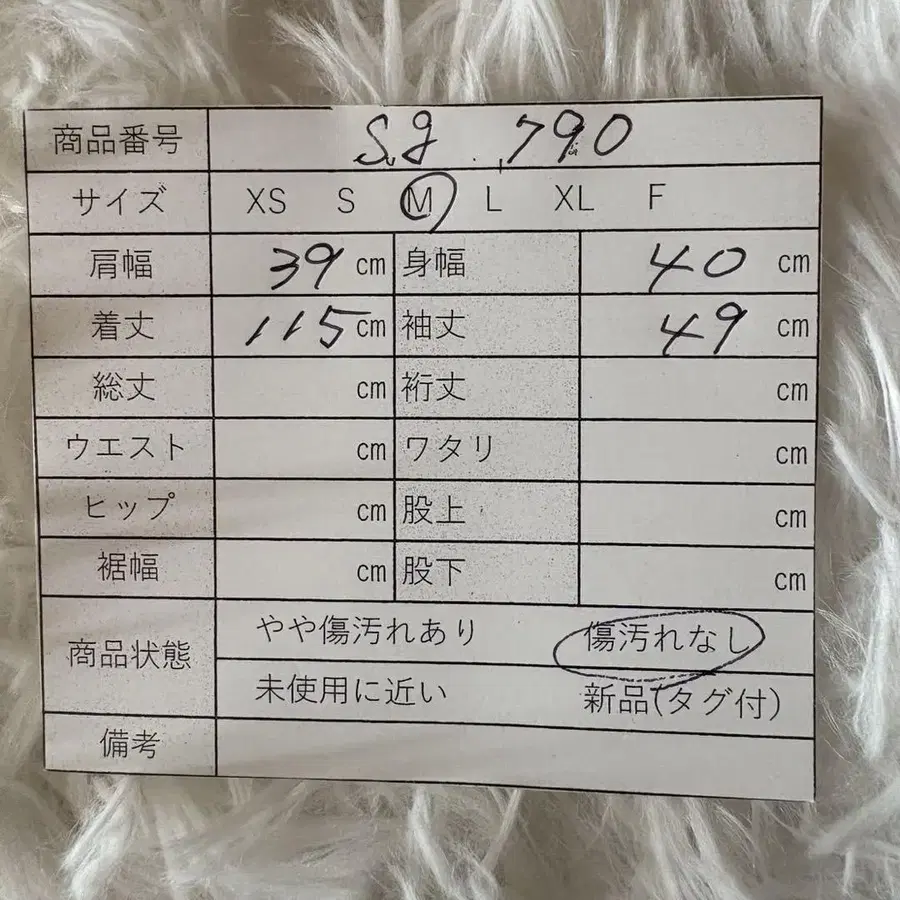 商品番号 Sg 790
サイズ XS S M L XL F
肩幅 39 cm 身幅 40 cm
着丈 115 cm 袖丈 49 cm
総丈 cm 裄丈 cm
ウエスト cm ワタリ cm
ヒップ cm 股上 cm
裾幅 cm 股下 cm
商品状態 やや傷汚れあり 傷汚れなし
未使用に近い 新品(タグ付)
備考